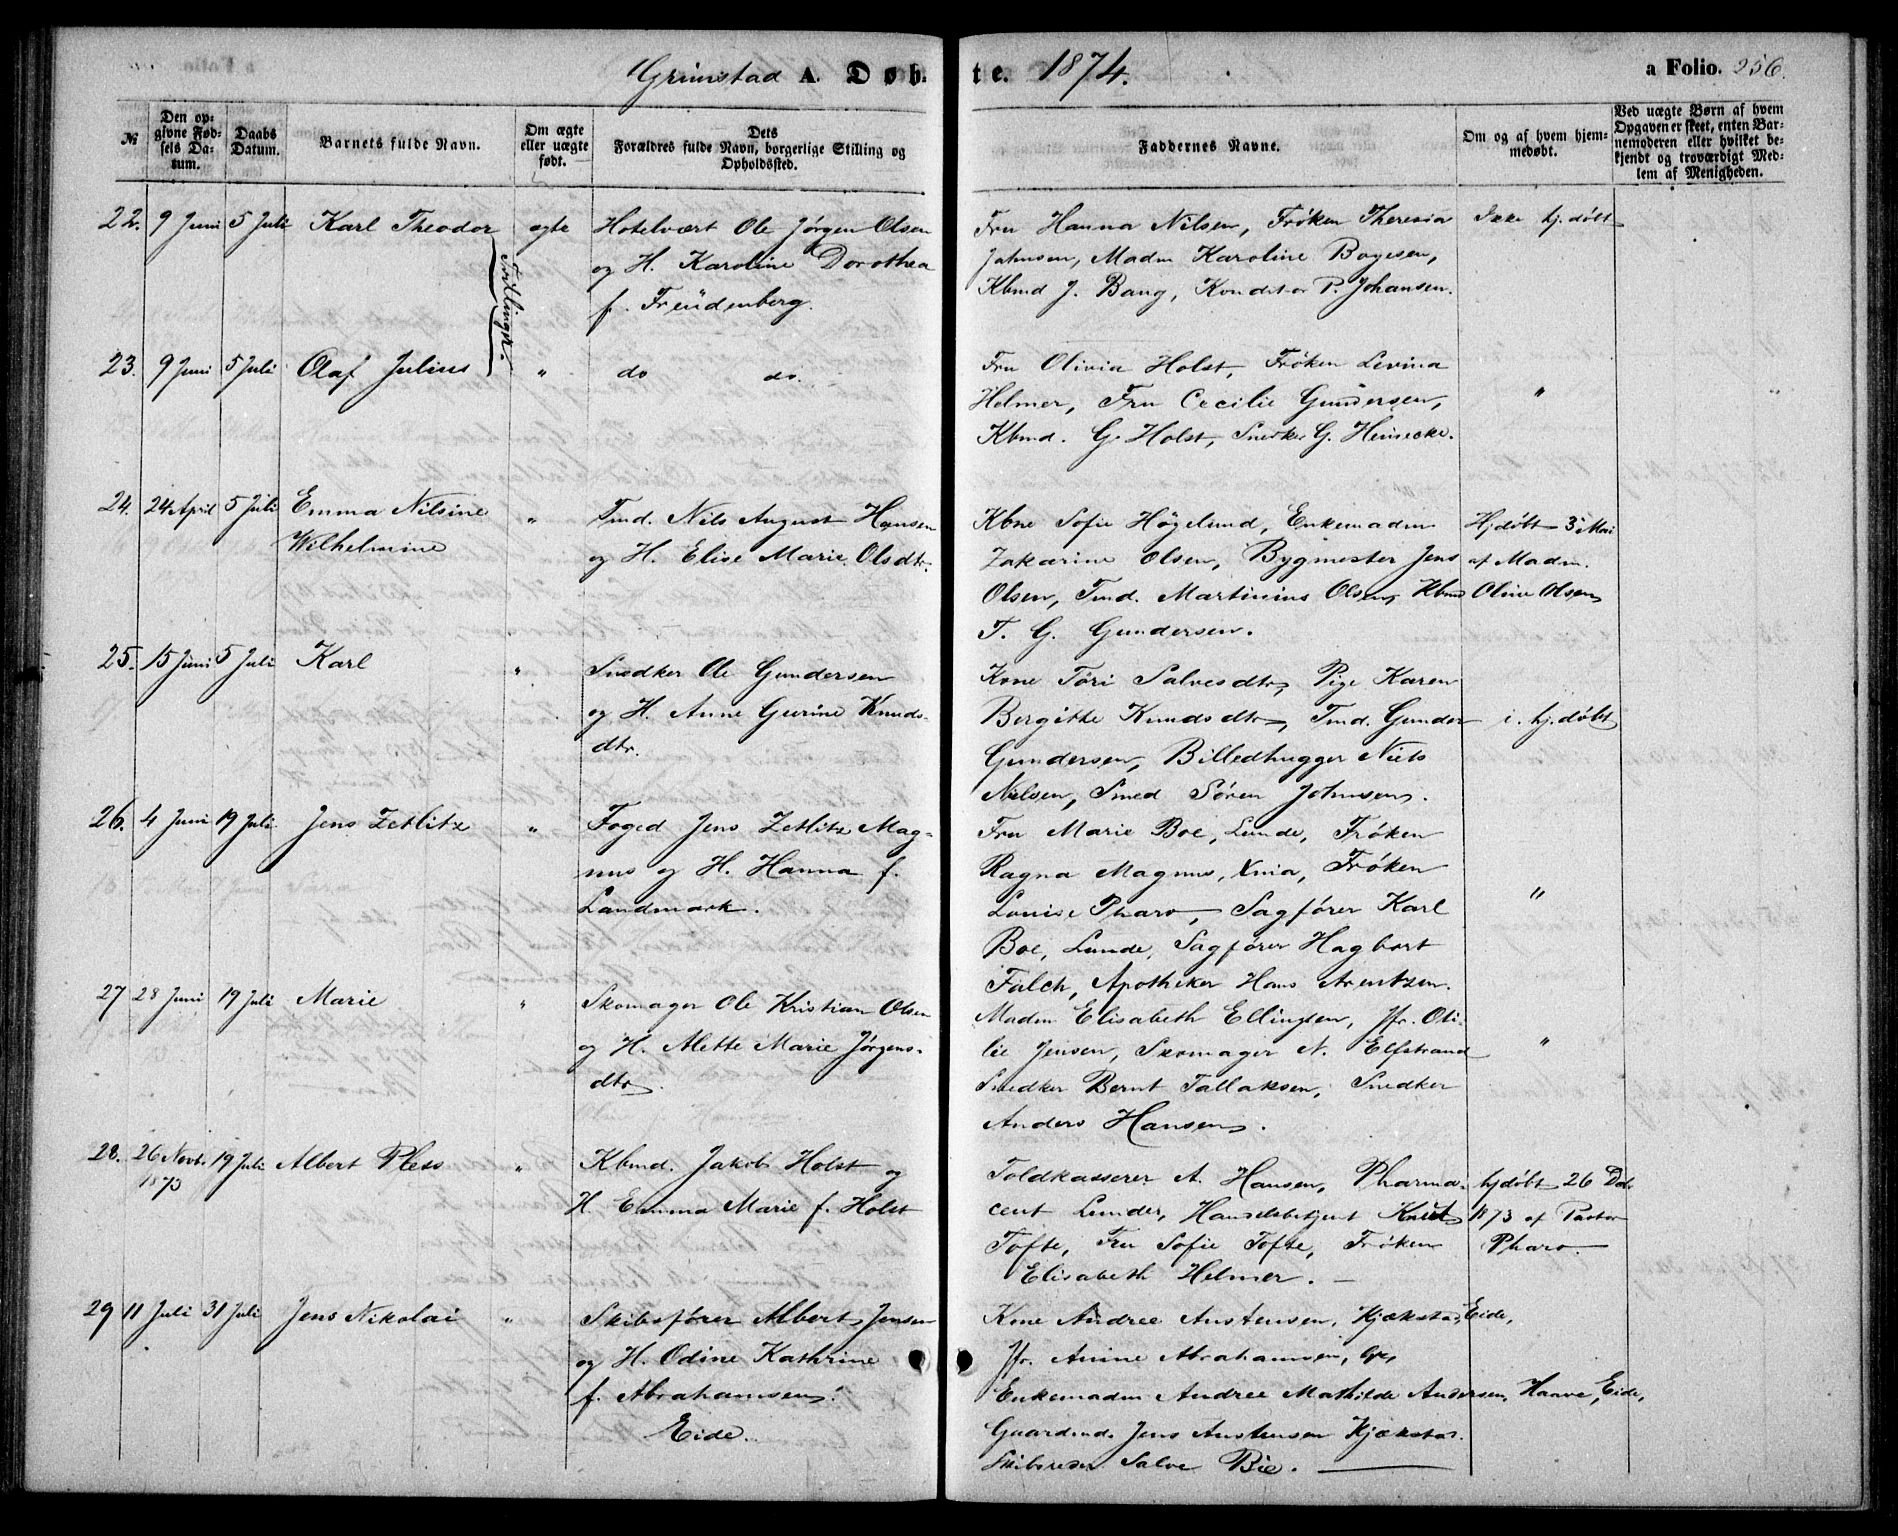 Grimstad A. Døbte. 1874. a Folio. 256.
№ Den opgivne Fødsels Datum. Daabs Datum. Barnets fulde Navn. Om ægte eller uægte født. Dets Forældres fulde Navn, borgerlige Stilling og Opholdssted. Faddernes Navne. Om og af hvem hjemmedøbt. Ved uægte Børn af hvem Opgaven er skeet, enten Barnemoderen eller hvilket bekjendt og troværdigt Medlem af Menigheden.
22. 9 Juni 5 Juli Karl Theodor ægte Hotelvært Ole Jørgen Olsen
og H. Karoline Dorothea
f. Freudenberg.
Tvillinger.
Fru Hanna Nilsen, Frøken Theresia
Jahnsen, Madm Karoline Boyesen,
Kbmd J. Bang, Konditor P. Johansen.
Ikke hj. døbt
23. 9 Juni 5 Juli Olaf Julius " do do.
Fru Olivia Holst, Frøken Levina
Helmer, Fru Cecilie Gundersen, "
Kbmd. G. Holst, Snedker G. Heinecke.
24. 24 April 5 Juli Emma Nilsine
Wilhelmine
" Tmd. Nils August Hansen
og H. Elise Marie Olsdtr.
Kone Sofie Høgelund, Enkemadm
Zakarine Olsen, Bygmester Jens
Olsen, Tmd. Martinius Olsen, Kbmd
T. G. Gundersen.
Hjdøbt 3 Mai
af Madm.
Oline Olsen
25. 15 Juni 5 Juli Karl " Snedker Ole Gundersen
og H. Anne Gurine Knuds-
dtr.
Kone Töri Salvesdtr, Pige Karen
Bergitte Knudsdtr, Tmd. Gunder
Gundersen, Billedhugger Niels
Nilsen, Smed Søren Johnsen.
i. hj. døbt
26. 4 Juni 19 Juli Jens Zetlitz " Foged Jens Zetlitz Mag-
nus og H. Hanna f.
Landmark.
Fru Marie Boe, Lunde, Frøken
Ragna Magnus, Xnia, Frøken
Louise Pharo, Sagfører Karl "
Boe, Lunde, Sagfører Hagbart
Falch, Apotheker Hans Arentzen.
27 28 Juni 19 Juli Marie " Skomager Ole Kristian Olsen
og H. Alette Marie Jørgens-
dtr.
Madm Elisabeth Ellingsen, Jfr. Oti-
lie Jensen, Skomager N. Elfstrand "
Snedker Bernt Tallaksen, Snedker
Anders Hansen.
28. 26 Novb. 19 Juli Albert Pless " Kbmd. Jakob Holst og
1873 H. Emma Marie f. Holst
Toldkasserer A. Hansen, Pharma-
cent Lunder, Handelsbetjent Knut
Tofte, Fru Sofie Tofte, Frøken
Elisabeth Helmer. —
hjdøbt 26 Dd.
1873 af Pastor
Pharo.
29 11 Juli 31 Juli Jens Nikolai " Skibsfører Albert Jensen
og H. Odine Kathrine
f. Abrahamsen.
Eide.
Kone Andree Anstensen, Kjækstad, Eide,
Jfr. Anine Abrahamsen,
Enkemadm Andree Mathilde Andersen, Haave, Eide,
Gaardmd. Jens Anstensen Kjækstad.
Skibsreder Salve Bie.